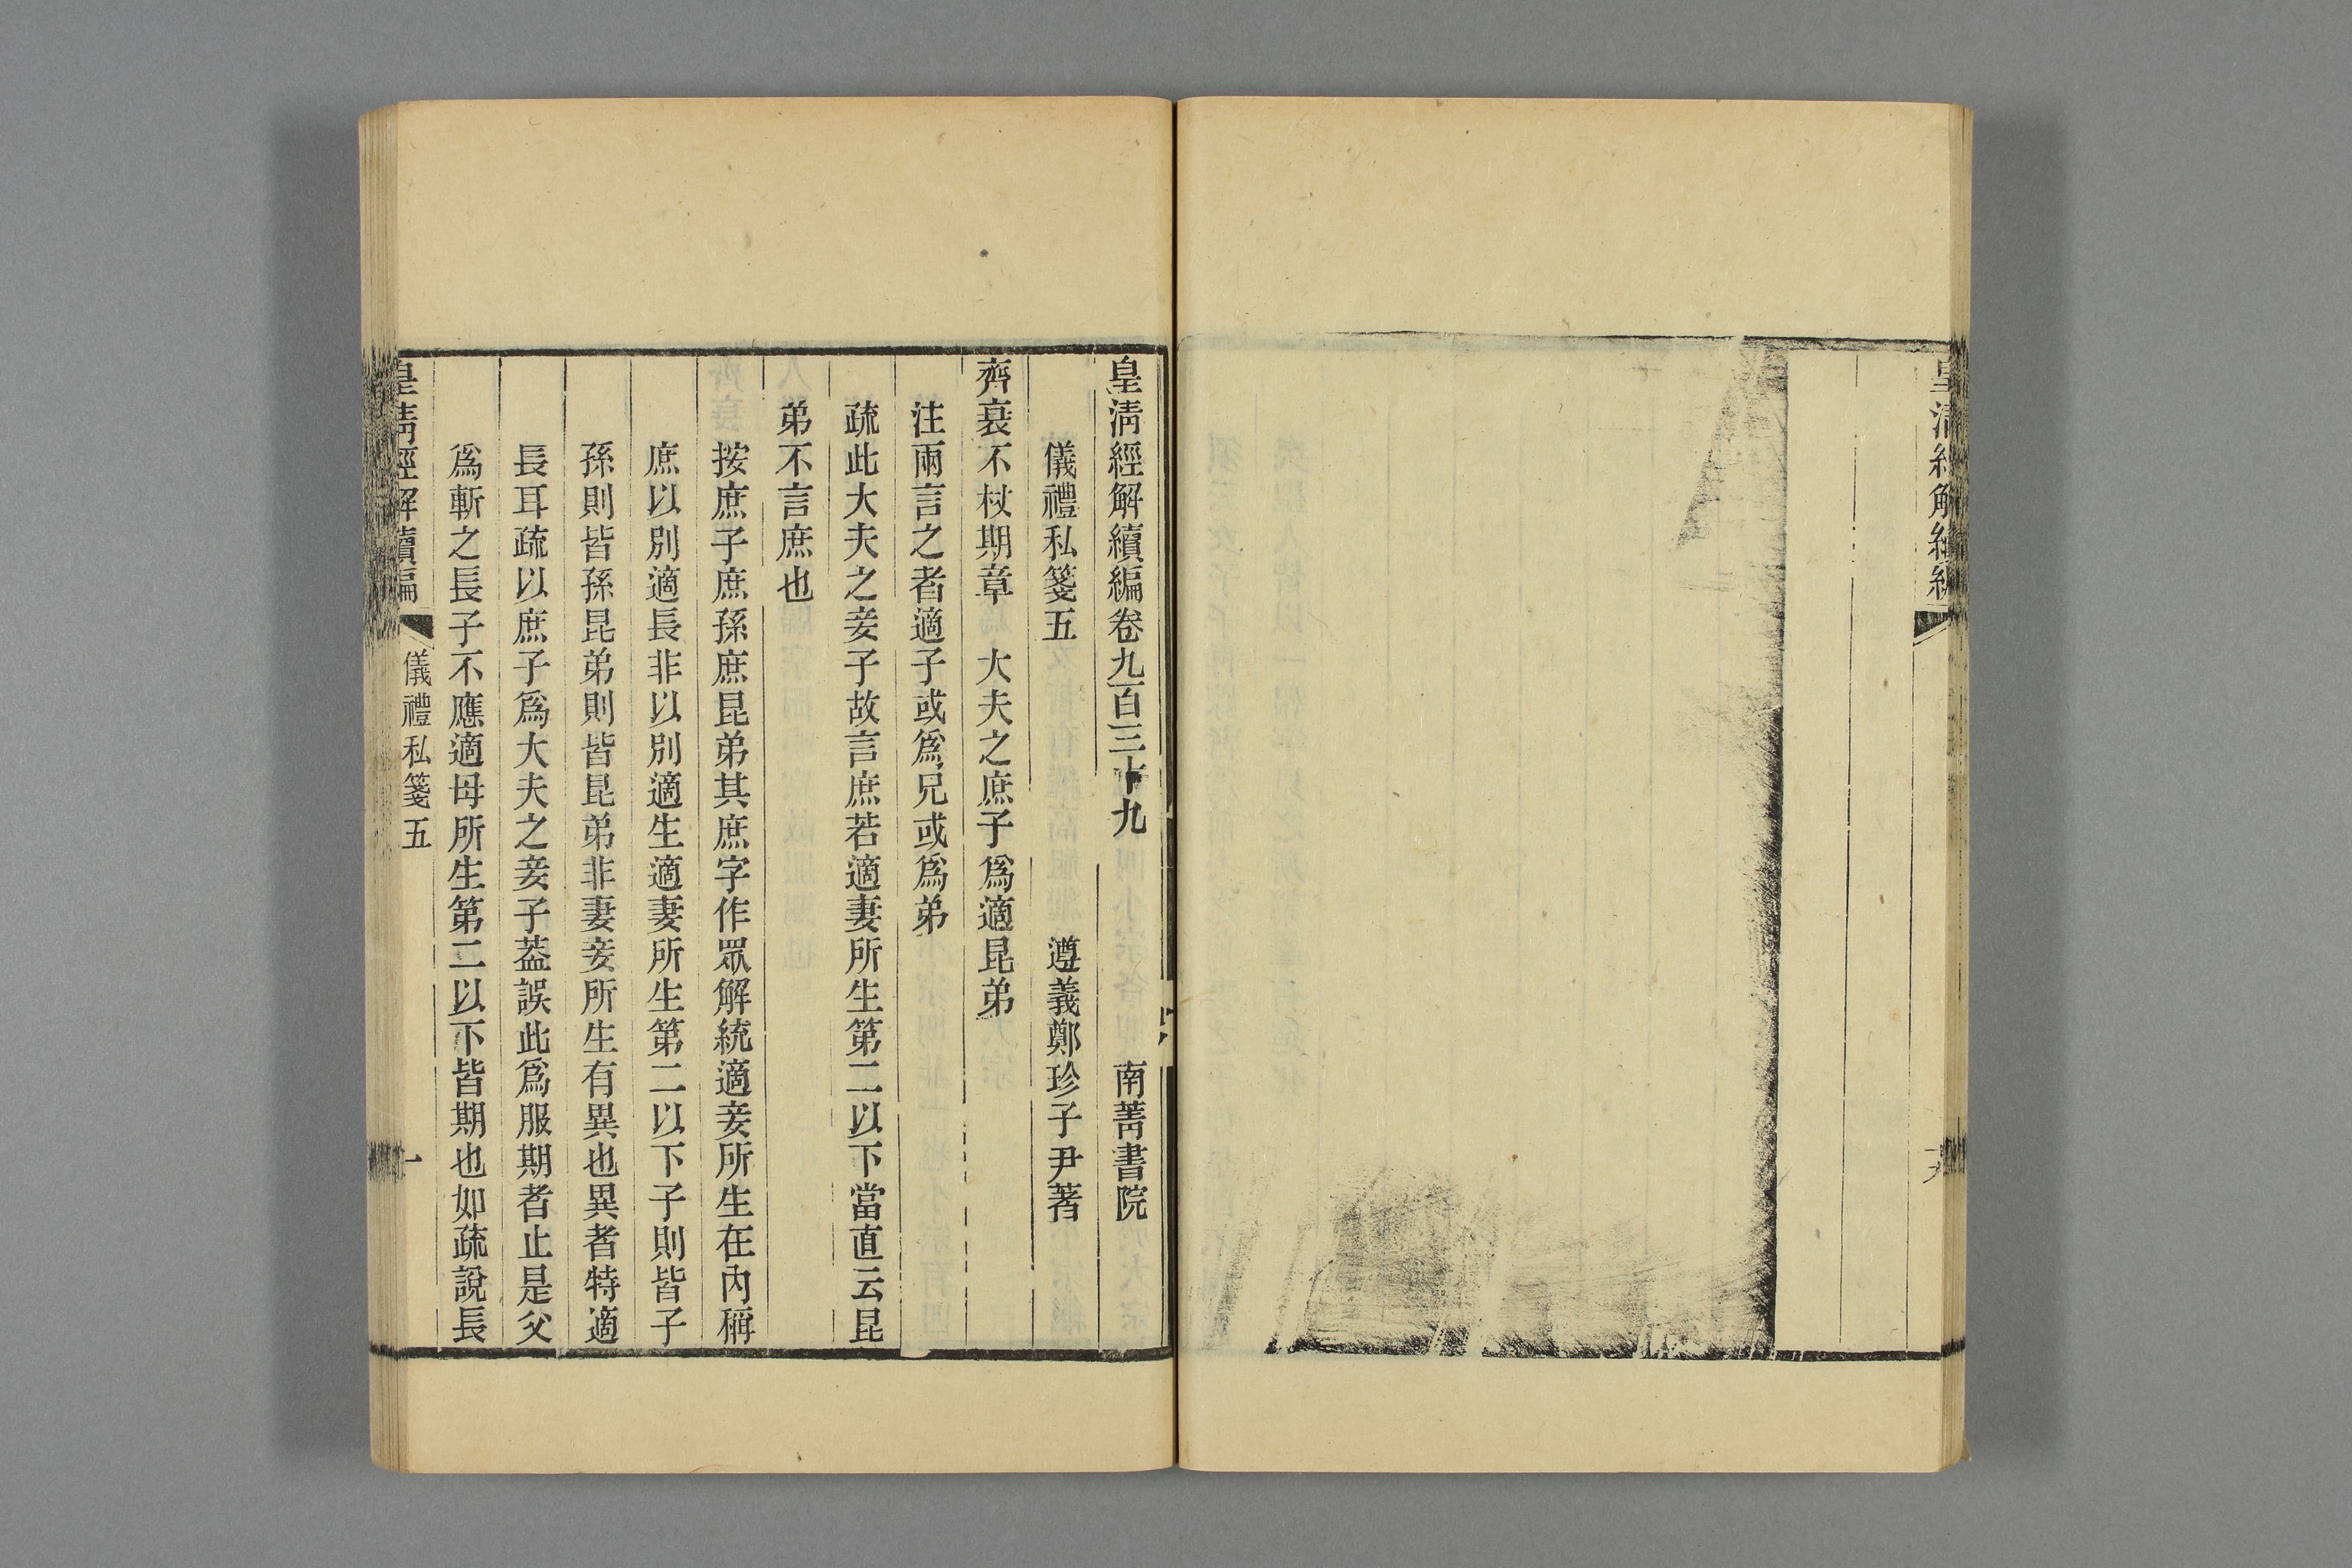 皇清經解續編
皇清經解續編卷九百三十九　南菁書院
儀禮私箋五　遵義鄭珍子尹著
齊衰不杖期章　大夫之庶子爲適昆弟
注兩言之者適子或爲兄或爲弟
疏此大夫之妾子故言庶若適妻所生第二以下當直云昆
弟不言庶也
按庶子庶孫庶昆弟其庶字作眾解統適妾所生在內稱
庶以別適長非以別適生適妻所生第二以下子則皆子
孫則皆孫昆弟則皆昆弟非妻妾所生有異也異者特適
長耳疏以庶子爲大夫之妾子葢誤此爲服期者止是父
爲斬之長子不應適母所生第二以下皆期也如疏說長
皇清經解續編　儀禮私箋五　一